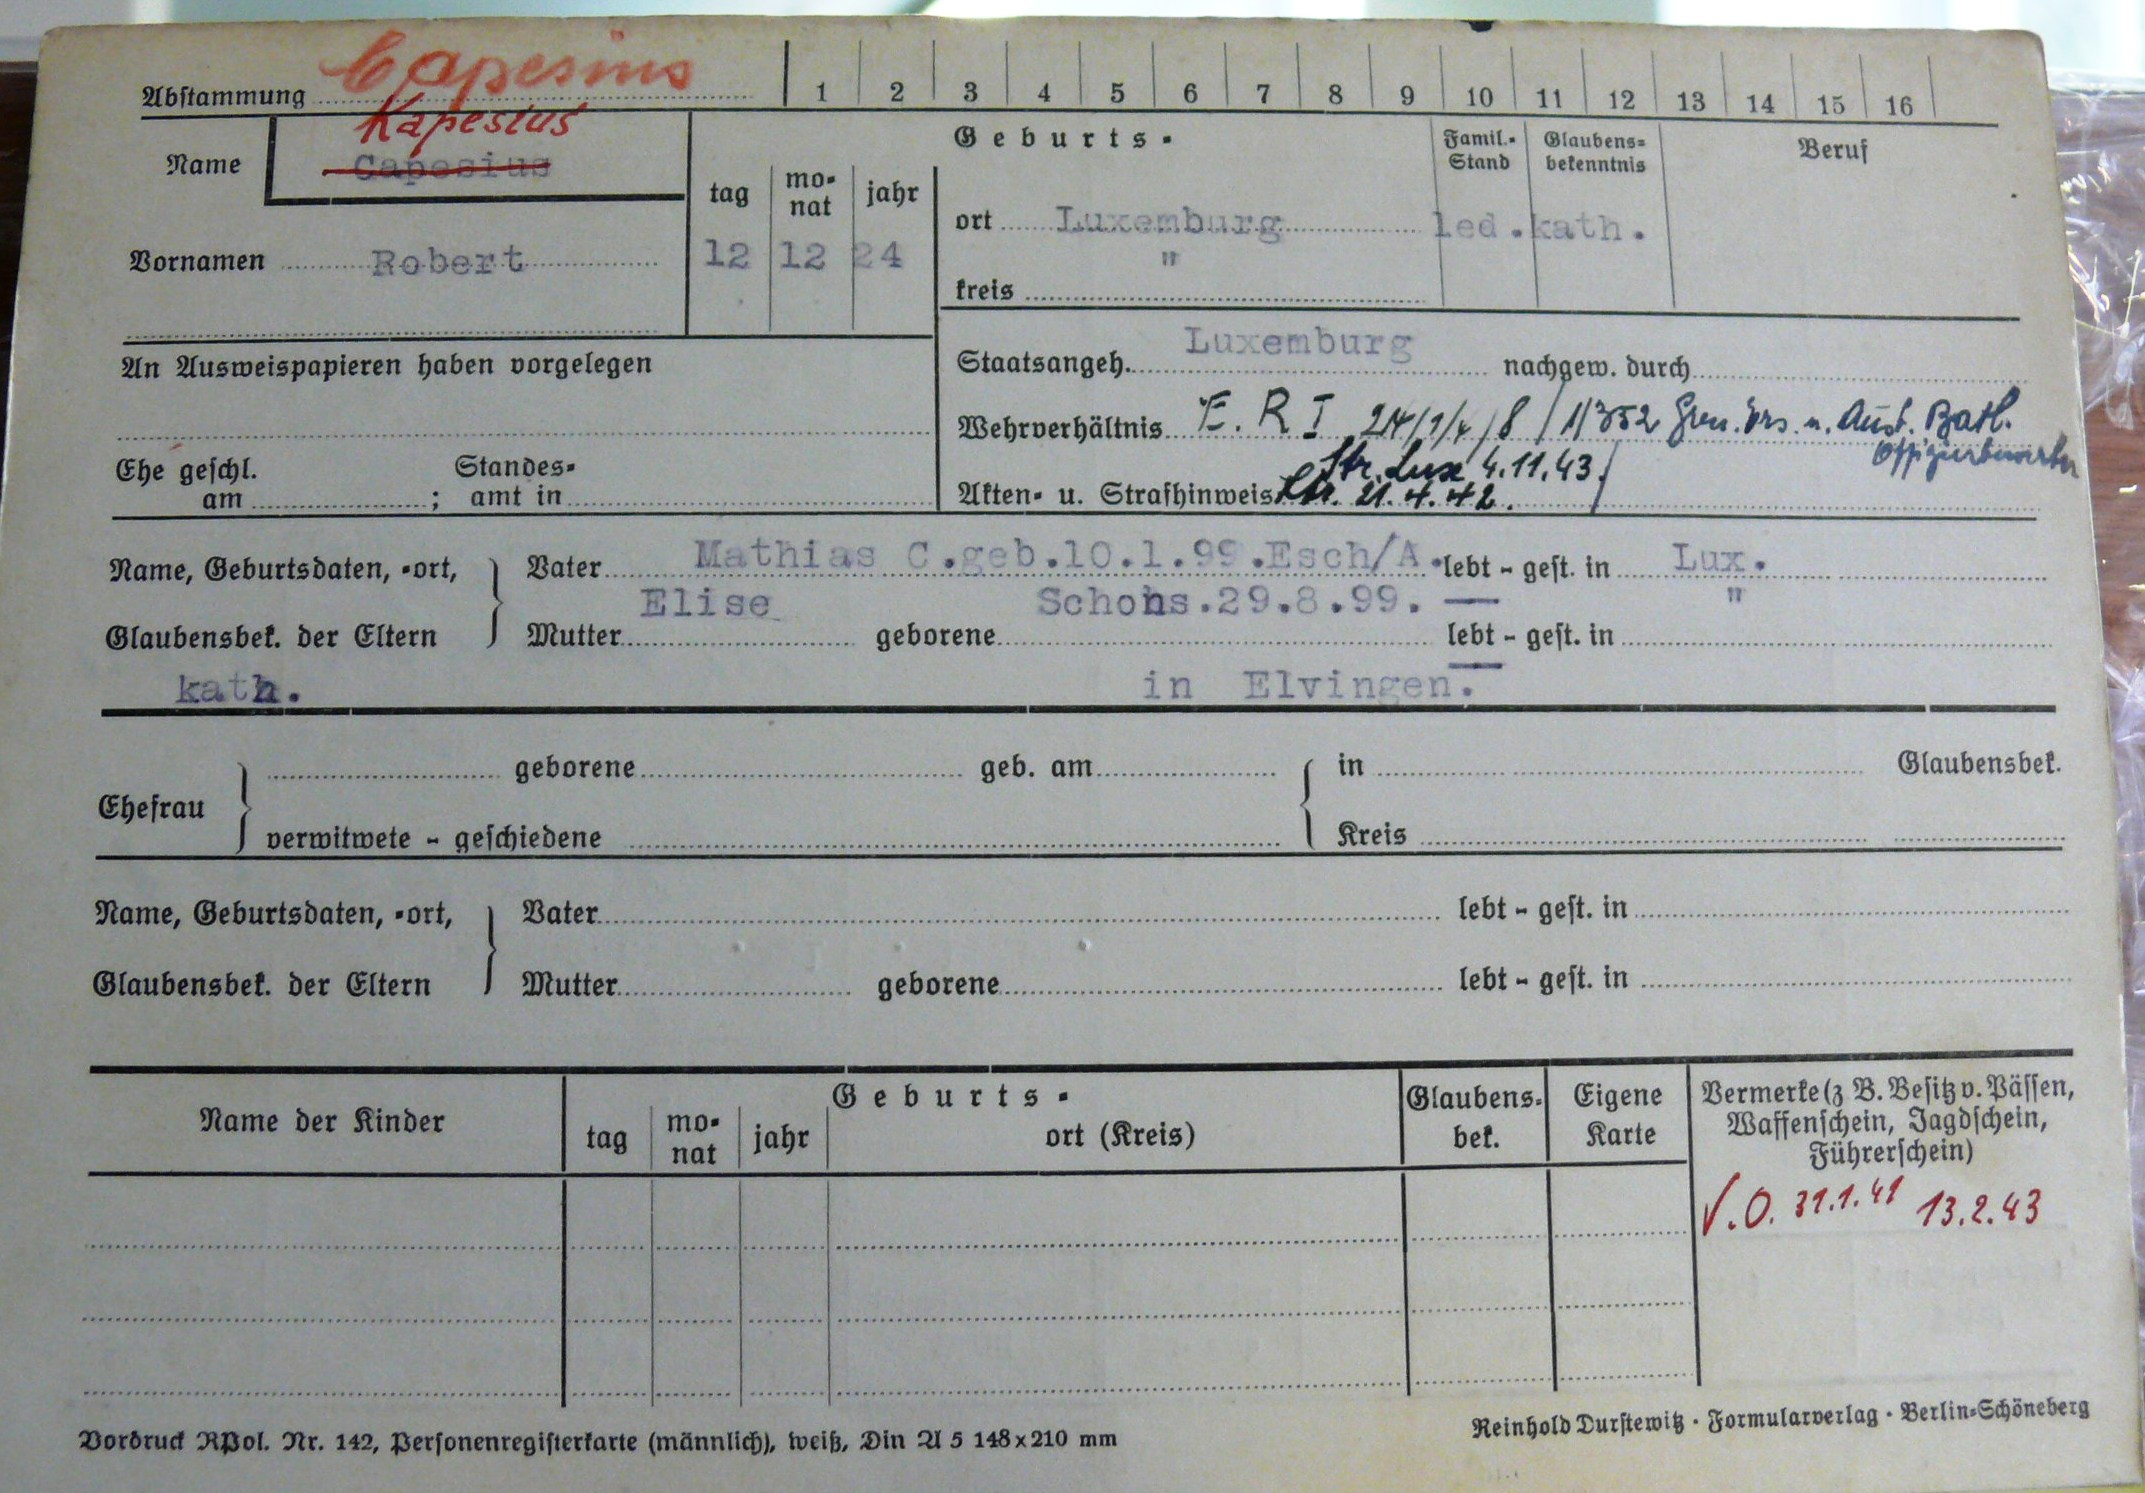 Capesius
Abstammung 1 2 3 4 5 6 7 8 9 10 11 12 13 14 15 16
Kapesius
Name Capesius
Geburts-
tag mo-nat jahr
Famil.-Stand Glaubens-bekenntnis Beruf
ort Luxemburg led. kath.
Vornamen Robert 12 12 24 "
kreis
An Ausweispapieren haben vorgelegen
Staatsangeh. Luxemburg nachgew. durch
Wehrverhältnis E. R I 24/1/4/8/11/352 Gren. Ers. u. Ausb. Batl.
Offizierbewerber
Ehe geschl. am ; Standes-amt in
Str. Lux 4.11.43.
Akten- u. Strafhinweis Str. 21.4.42.
Name, Geburtsdaten, -ort, Vater Mathias C.geb.10.1.99.Esch/A. lebt - gest. in Lux.
Elise Schons.29.8.99. "
Glaubensbek. der Eltern Mutter geborene lebt - gest. in
kath. in Elvingen.
geborene geb. am in Glaubensbek.
Ehefrau
verwitwete - geschiedene Kreis
Name, Geburtsdaten, -ort, Vater lebt - gest. in
Glaubensbek. der Eltern Mutter geborene lebt - gest. in
Name der Kinder
Geburts-
tag mo-nat jahr ort (Kreis)
Glaubens-bek.
Eigene Karte
Vermerke (z B. Besitz v. Pässen,
Waffenschein, Jagdschein,
Führerschein)
V.O. 31.1.41 13.2.43
Vordruck RPol. Nr. 142, Personenregisterkarte (männlich), weiß, Din A 5 148x210 mm
Reinhold Durstewitz · Formularverlag · Berlin-Schöneberg